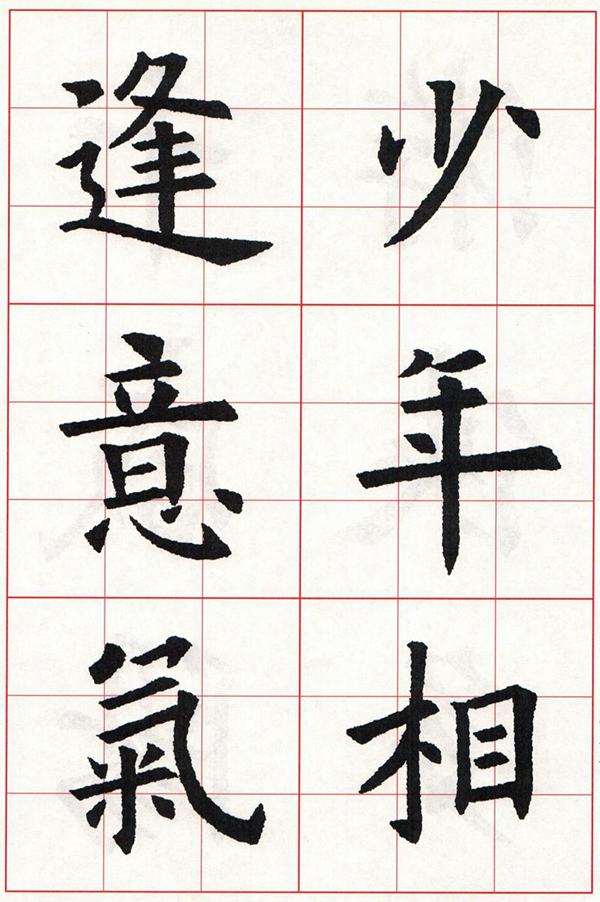 少年相
逢意氣